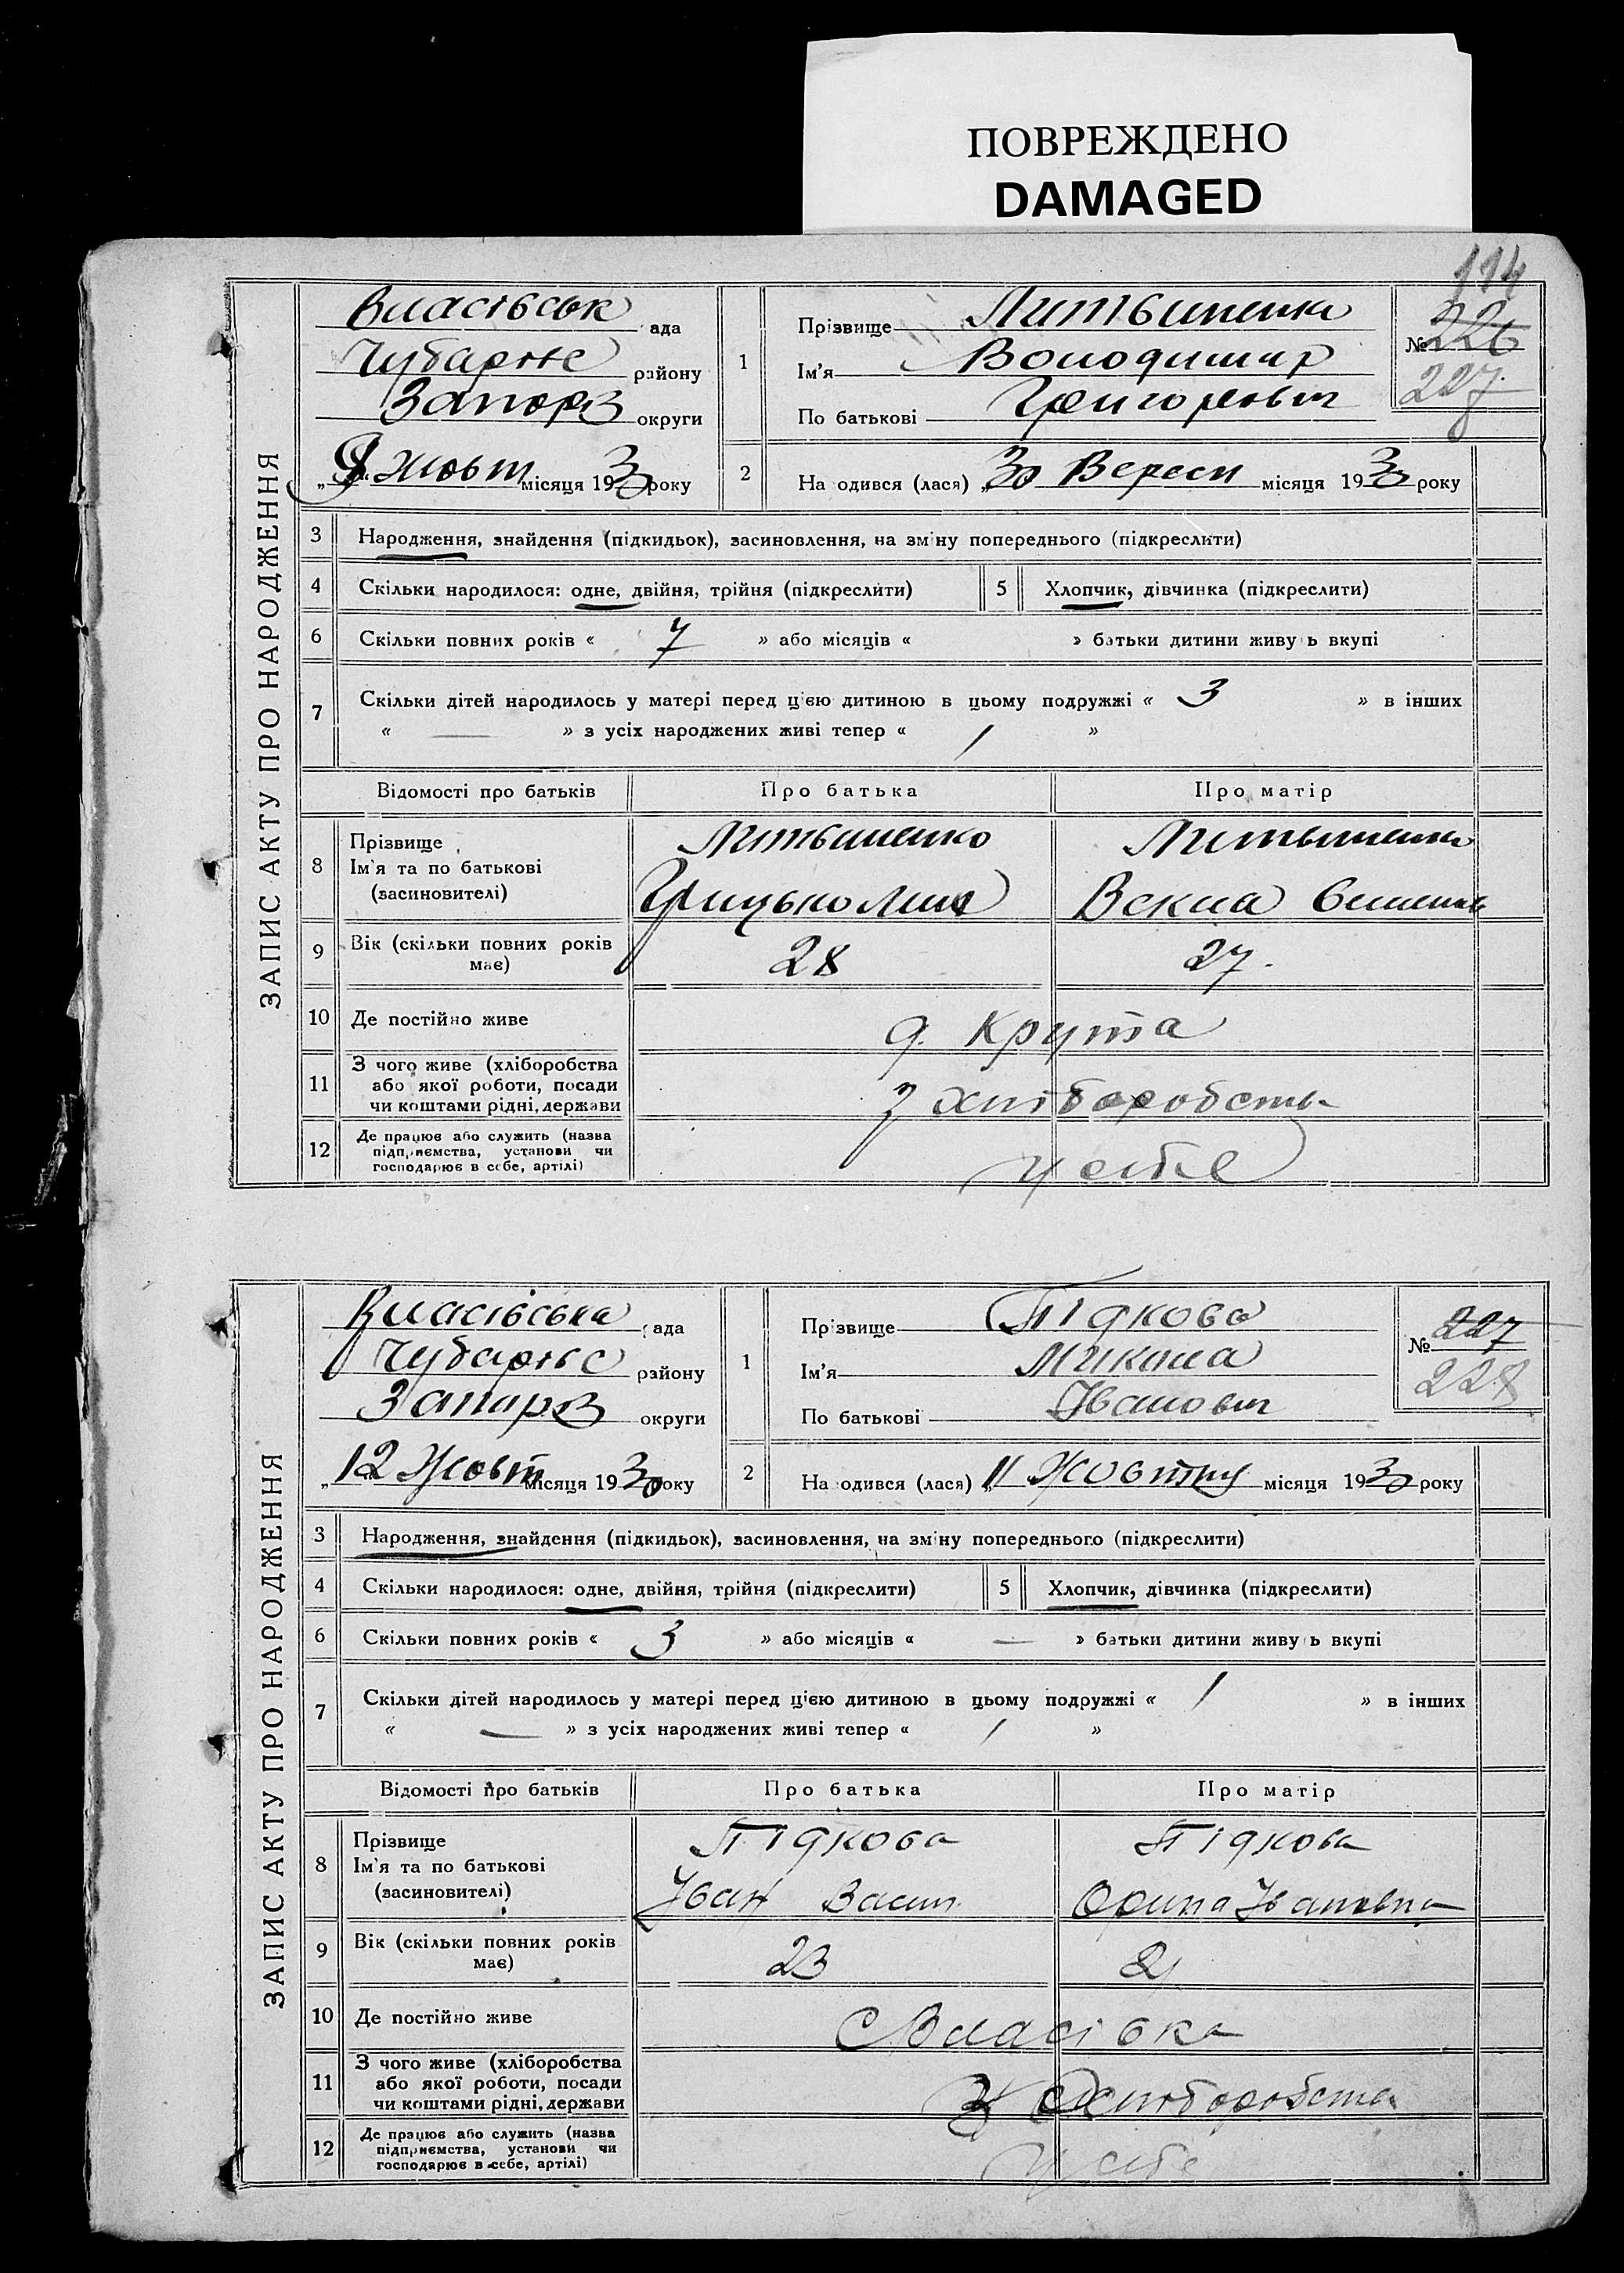 ПОВРЕЖДЕНО
DAMAGED
114
ЗАПИС АКТУ ПРО НАРОДЖЕННЯ
Власівськ ада
Чубарівс району
Запоріз округи
9 жовт місяця 1930 року
1
Прізвище Литвиненко
Ім'я Володимир
По батькові Григорович
№ 226
227
2 На одився (лася) „30 Вересн місяця 1930 року
3 Народження, знайдення (підкидьок), засиновлення, на зміну попереднього (підкреслити)
4 Скільки народилося: одне, двійня, трійня (підкреслити) 5 Хлопчик, дівчинка (підкреслити)
6 Скільки повних років « 7 » або місяців « » батьки дитини живу ь вкупі
7 Скільки дітей народилось у матері перед цією дитиною в цьому подружжі « 3 » в інших
« — » з усіх народжених живі тепер « 1 »
Відомості про батьків Про батька Про матір
8 Прізвище
Ім'я та по батькові
(засиновителі)
Литвиненко
Грицько
Литвиненко
9 Вік (скільки повних років
має)
28 27.
10 Де постійно живе
Крута
11 З чого живе (хліборобства
або якої роботи, посади
чи коштами рідні, держави
з хліборобств
12 Де працює або служить (назва
підприємства, установи чи
господарює в себе, артілі)
у себе
ЗАПИС АКТУ ПРО НАРОДЖЕННЯ
Власівська ада
Чубарівс району
Запоріз округи
„12 Жовт місяця 1930 року
1
Прізвище Підкова
Ім'я Микола
По батькові Іванович
№ 227
228
2 На одився (лася) „11 Жовтня місяця 1930 року
3 Народження, знайдення (підкидьок), засиновлення, на зміну попереднього (підкреслити)
4 Скільки народилося: одне, двійня, трійня (підкреслити) 5 Хлопчик, дівчинка (підкреслити)
6 Скільки повних років « 3 » або місяців « — » батьки дитини живу ь вкупі
7 Скільки дітей народилось у матері перед цією дитиною в цьому подружжі « 1 » в інших
« — » з усіх народжених живі тепер « 1 »
Відомості про батьків Про батька Про матір
8 Прізвище
Ім'я та по батькові
(засиновителі)
Підкова
Іван Васил
Підкова
Орина Івановна
9 Вік (скільки повних років
має)
23 21
10 Де постійно живе
с Власівка
11 З чого живе (хліборобства
або якої роботи, посади
чи коштами рідні, держави
З Хліборобства
12 Де працює або служить (назва
підприємства, установи чи
господарює в себе, артілі)
у себе